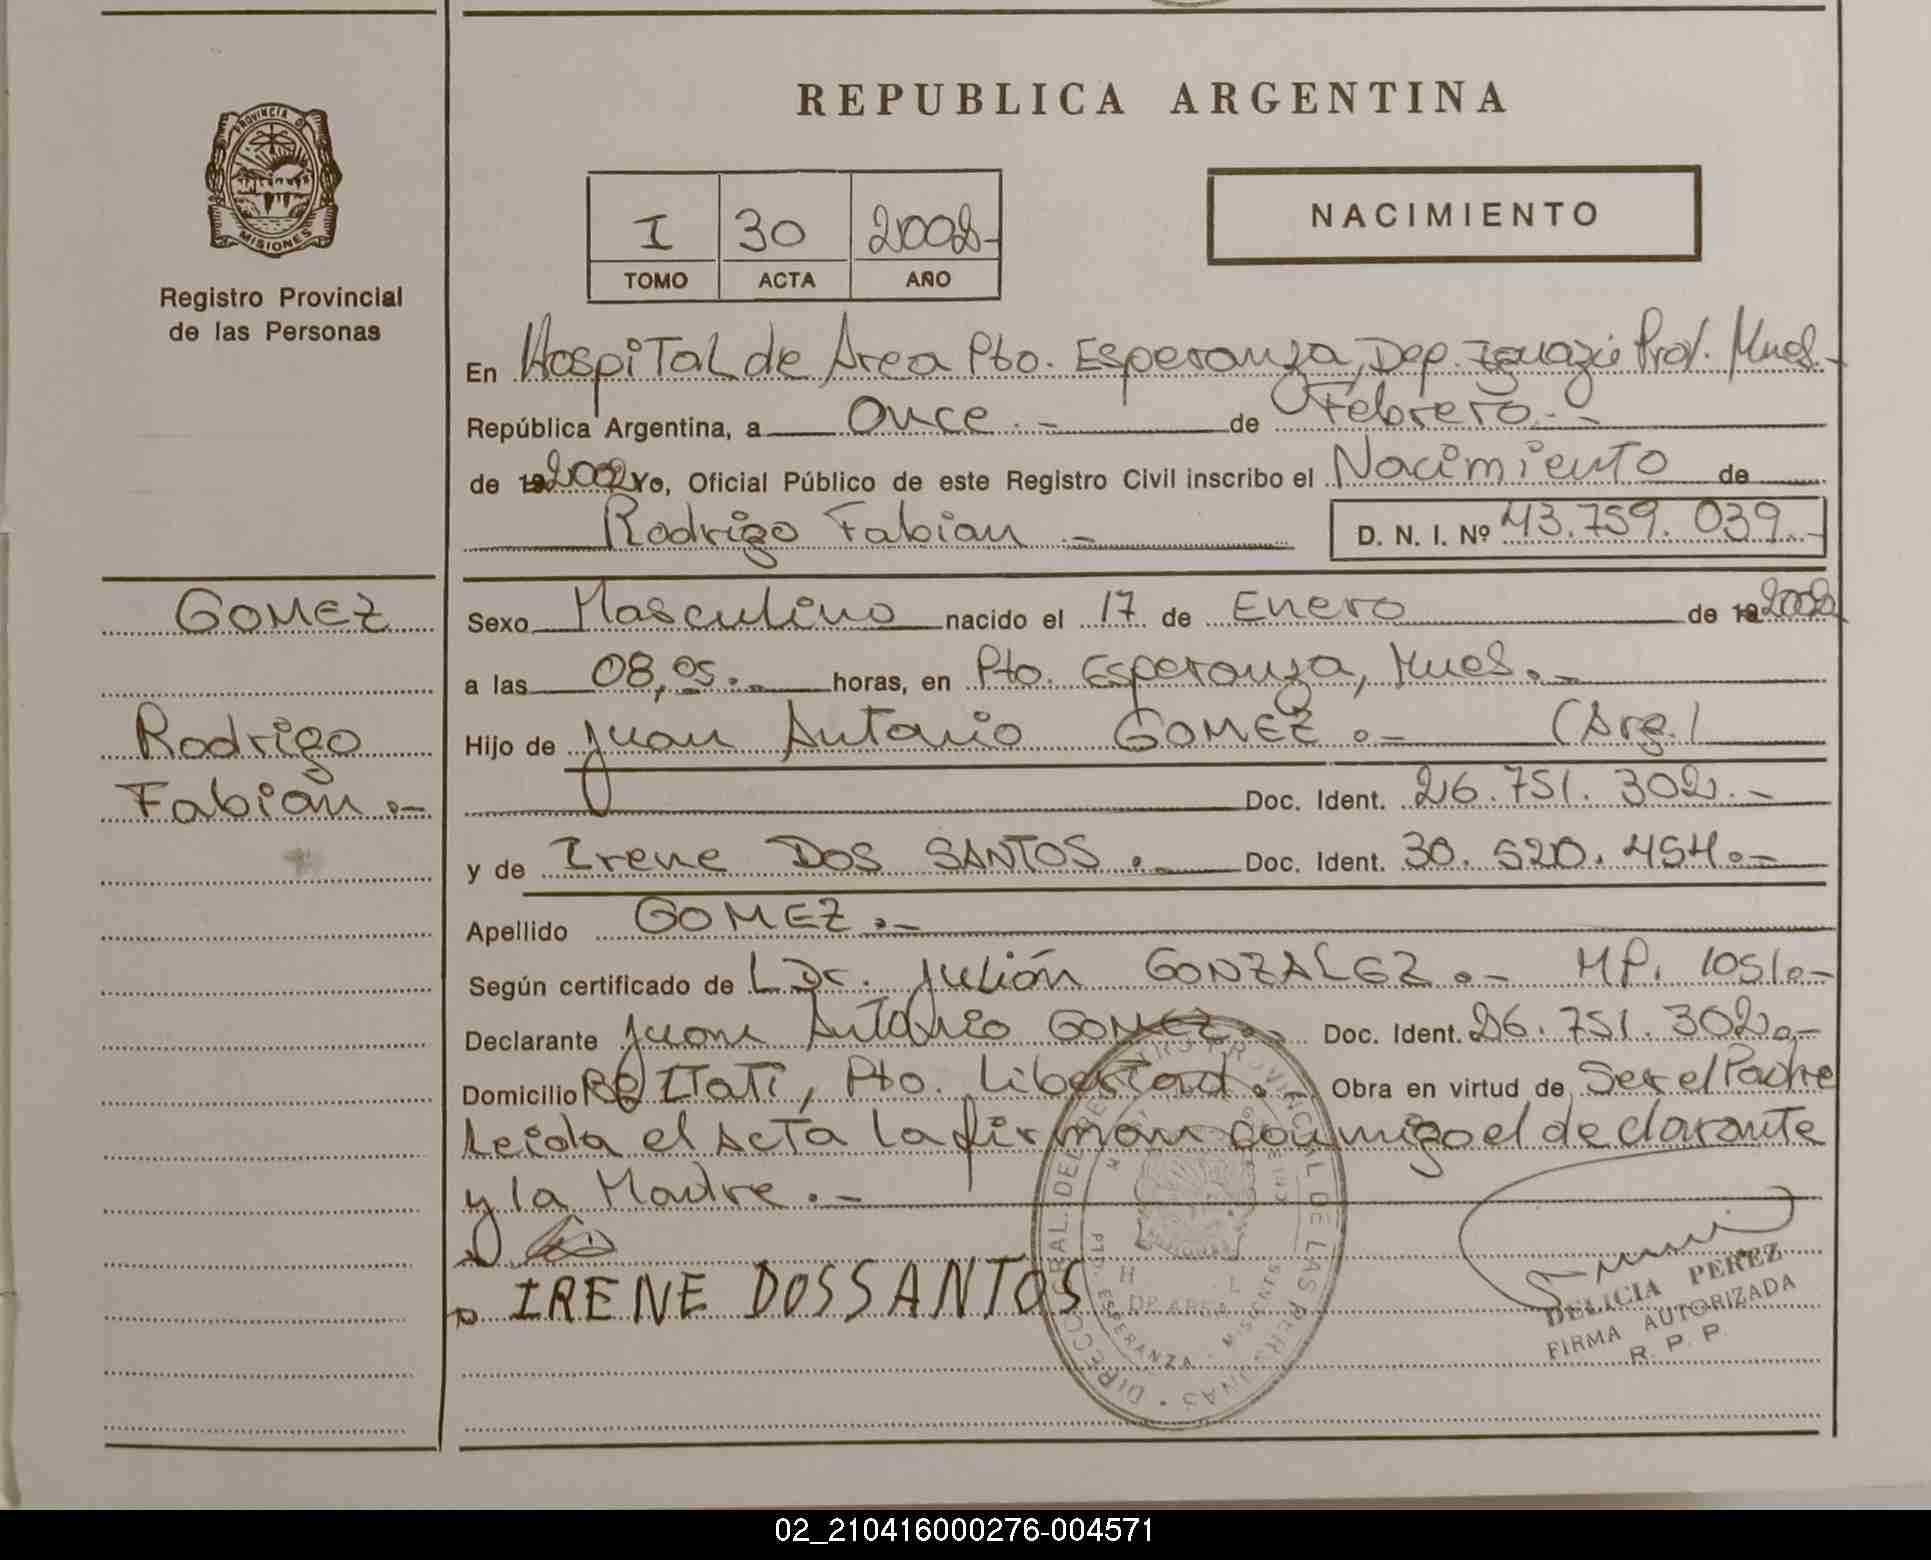 REPUBLICA ARGENTINA
PROVINCIA DE
MISIONES
Registro Provincial
de las Personas
I 30 2002-
TOMO ACTA AÑO
NACIMIENTO
En Hospital de Area Pto. Esperanza, Dep. Iguazú Prov. Mnes.-
República Argentina, a Once.- de Febrero.-
de 192002 Yo, Oficial Público de este Registro Civil inscribo el Nacimiento de
Rodrigo Fabian.- D. N. I. Nº 43.759.039.-
GOMEZ
Rodrigo
Fabian.-
Sexo Masculino nacido el 17 de Enero de 192002
a las 08,05.- horas, en Pto. Esperanza, Mnes.-
Hijo de Juan Antonio GOMEZ.- (Arg.)
Doc. Ident. 26.751.302.-
y de Irene DOS SANTOS.- Doc. Ident. 30.520.454.-
Apellido GOMEZ.-
Según certificado de Dr. Julión GONZALEZ.- MP. 1051.-
Declarante Juan Antonio GOMEZ.- Doc. Ident. 26.751.302.-
Domicilio Bº ITaTí, Pto. Libertad. Obra en virtud de Ser el Padre
Leida el acta la firman conmigo el declarante
y la Madre.-
IRENE DOSSANTOS
DELICIA PEREZ
FIRMA AUTORIZADA
R. P. P.
PROVINCIAL DE LAS PERSONAS
ESPERANZA - MISIONES
02_210416000276-004571